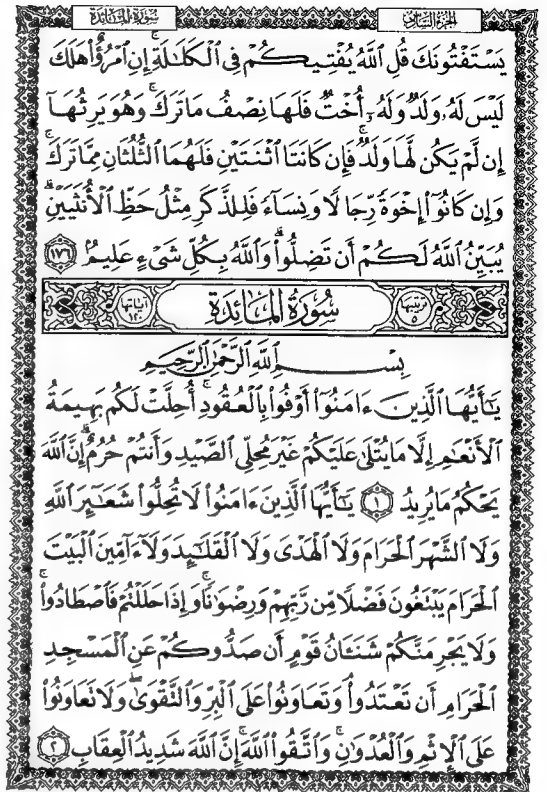 سُورَةُ المَائِدَةِ
الجزء السادس
يَسْتَفْتُونَكَ قُلِ ٱللَّهُ يُفْتِيكُمْ فِى ٱلْكَلَـٰلَةِ ۚ إِنِ ٱمْرُؤٌا۟ هَلَكَ
لَيْسَ لَهُۥ وَلَدٌ وَلَهُۥٓ أُخْتٌ فَلَهَا نِصْفُ مَا تَرَكَ ۚ وَهُوَ يَرِثُهَآ
إِن لَّمْ يَكُن لَّهَا وَلَدٌ ۚ فَإِن كَانَتَا ٱثْنَتَيْنِ فَلَهُمَا ٱلثُّلُثَانِ مِمَّا تَرَكَ ۚ
وَإِن كَانُوٓا۟ إِخْوَةً رِّجَالًا وَنِسَآءً فَلِلذَّكَرِ مِثْلُ حَظِّ ٱلْأُنثَيَيْنِ ۗ
يُبَيِّنُ ٱللَّهُ لَكُمْ أَن تَضِلُّوا۟ ۗ وَٱللَّهُ بِكُلِّ شَىْءٍ عَلِيمٌۢ ١٧٦
ترتيبها ٥ سُورَةُ المَائِدَةِ آياتها ١٢٠
بِسْمِ ٱللَّهِ ٱلرَّحْمَـٰنِ ٱلرَّحِيمِ
يَـٰٓأَيُّهَا ٱلَّذِينَ ءَامَنُوٓا۟ أَوْفُوا۟ بِٱلْعُقُودِ ۚ أُحِلَّتْ لَكُم بَهِيمَةُ
ٱلْأَنْعَـٰمِ إِلَّا مَا يُتْلَىٰ عَلَيْكُمْ غَيْرَ مُحِلِّى ٱلصَّيْدِ وَأَنتُمْ حُرُمٌ ۗ إِنَّ ٱللَّهَ
يَحْكُمُ مَا يُرِيدُ ١ يَـٰٓأَيُّهَا ٱلَّذِينَ ءَامَنُوا۟ لَا تُحِلُّوا۟ شَعَـٰٓئِرَ ٱللَّهِ
وَلَا ٱلشَّهْرَ ٱلْحَرَامَ وَلَا ٱلْهَدْىَ وَلَا ٱلْقَلَـٰٓئِدَ وَلَآ ءَآمِّينَ ٱلْبَيْتَ
ٱلْحَرَامَ يَبْتَغُونَ فَضْلًا مِّن رَّبِّهِمْ وَرِضْوَٰنًا ۚ وَإِذَا حَلَلْتُمْ فَٱصْطَادُوا۟ ۚ
وَلَا يَجْرِمَنَّكُمْ شَنَـَٔانُ قَوْمٍ أَن صَدُّوكُمْ عَنِ ٱلْمَسْجِدِ
ٱلْحَرَامِ أَن تَعْتَدُوا۟ ۘ وَتَعَاوَنُوا۟ عَلَى ٱلْبِرِّ وَٱلتَّقْوَىٰ ۖ وَلَا تَعَاوَنُوا۟
عَلَى ٱلْإِثْمِ وَٱلْعُدْوَٰنِ ۚ وَٱتَّقُوا۟ ٱللَّهَ ۖ إِنَّ ٱللَّهَ شَدِيدُ ٱلْعِقَابِ ٢